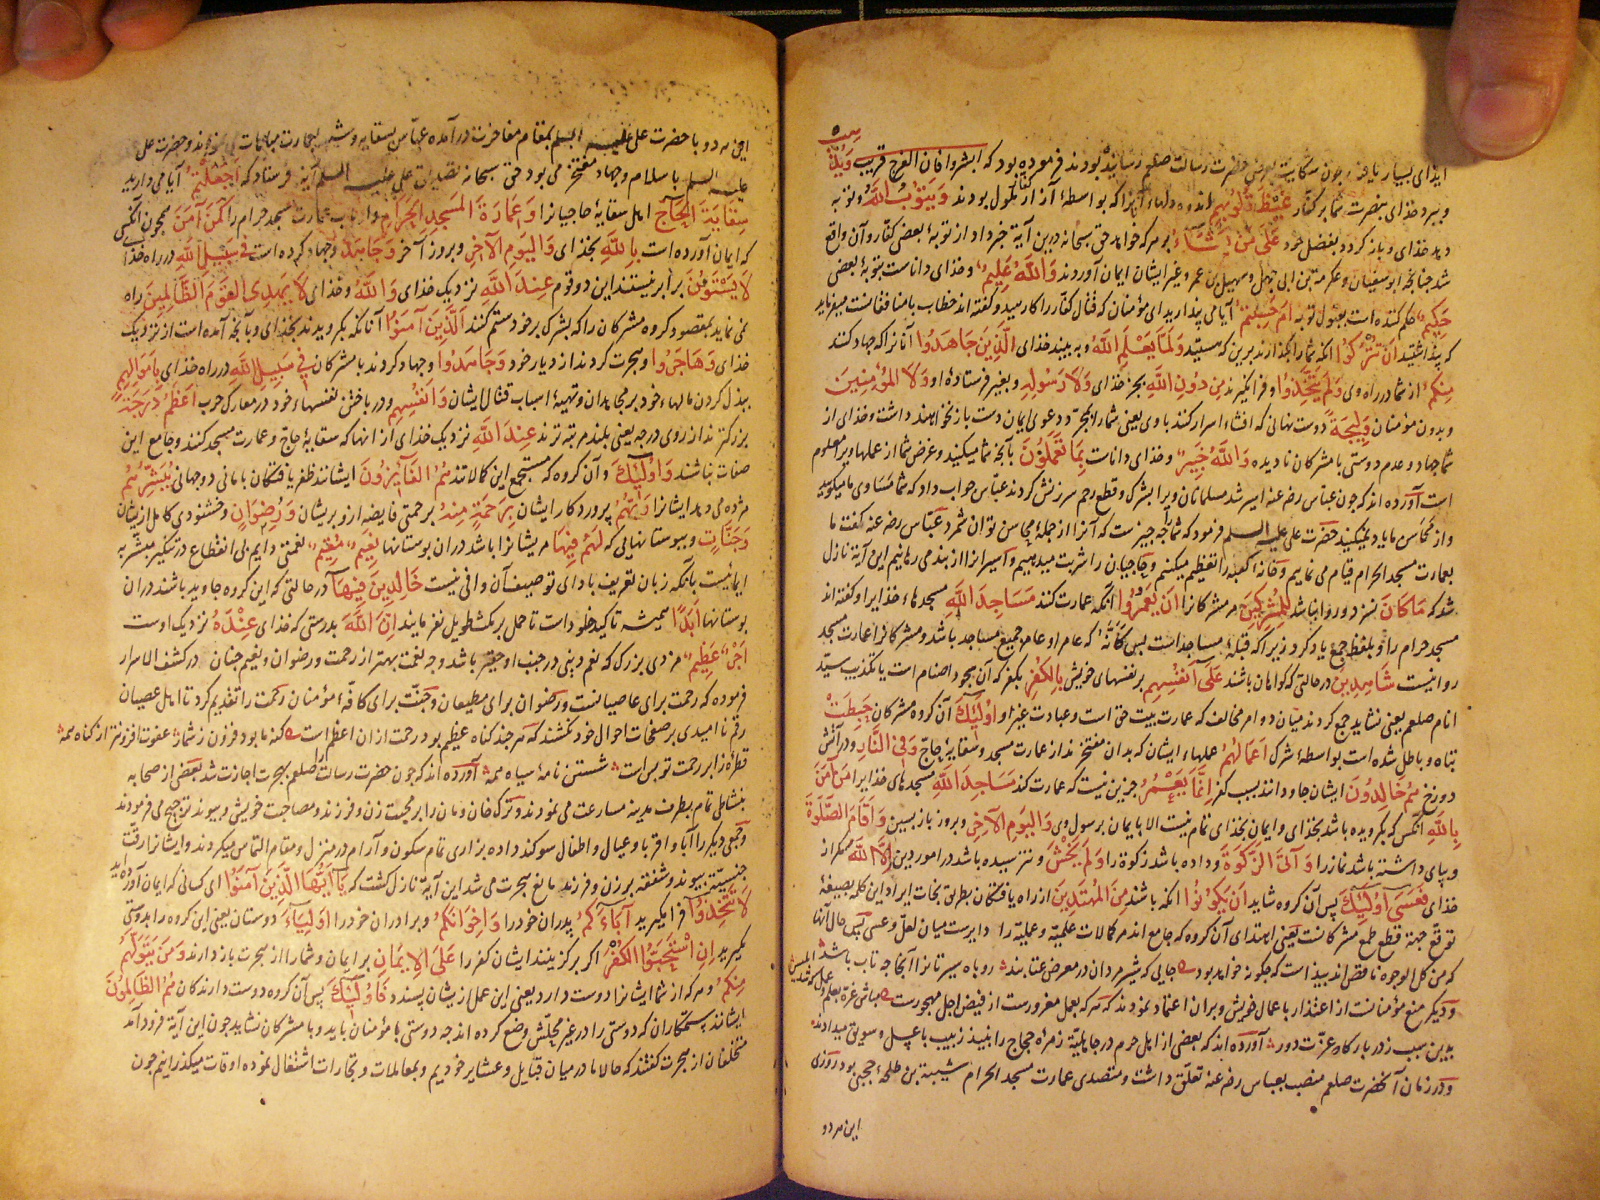 ایذای بسیار یافته و چون شکایت بعرض حضرت رسالت صلعم رسانیده بودند فرموده بود که ابشروا فان الفرج قریب وَیُذْهِبْ
و ببرد خدای بنصرت شما بر کفار غَیْظَ قُلُوبِهِمْ اندوه دلهاء آنرا که بواسطهٔ آزار کفار ملول بودند وَیَتُوبُ اللّٰهُ و توبه
دهد خدای و باز گردد بفضل خود عَلَی مَنْ یَشَاءُ بر هر که خواهد حق سبحانه درین آیة خبر داد از توبهٔ بعضی کفار و آن واقع
شد چنانچه ابو سفیان و عکرمة بن ابی جهل و سهیل بن عمرو و غیر ایشان ایمان آوردند وَاللّٰهُ عَلِیمٌ و خدای داناست بتوبهٔ بعضی
حَکِیمٌ حکم کننده است بقبول توبه اَمْ حَسِبْتُمْ آیا می پندارید ای مؤمنان که قتال کفار را کاره بودید و گفته اند خطاب با منافقانست میفرماید
که پنداشتید اَنْ تُتْرَکُوا آنکه شما را بگذارند برین که هستید وَلَمَّا یَعْلَمِ اللّٰهُ و نه بیند خدای الَّذِینَ جَاهَدُوا آنانرا که جهاد کنند
مِنْکُمْ از شما در راه وی وَلَمْ یَتَّخِذُوا و فرا نگیرند مِنْ دُونِ اللّٰهِ بجز خدای وَلَا رَسُولِهِ و بغیر فرستادهٔ او وَلَا الْمُؤْمِنِینَ
و بدون مؤمنان وَلِیجَةً دوست نهانی که افشاء اسرار کنند با وی یعنی شما را بمجرد دعوی ایمان دست باز نخواهند داشت و خدای از
شما جهاد و عدم دوستی با مشرکان نا دیده وَاللّٰهُ خَبِیرٌ و خدای داناست بِمَا تَعْمَلُونَ بآنچه شما میکنید و غرض شما از عملها ویرا معلوم
است آورده اند که چون عباس رضه عنه اسیر شد مسلمانان ویرا بشرک و قطع رحم سرزنش کردند عباس جواب داد که شما مساوی ما میگویید
و از محاسن ما یاد نمیکنید حضرت علی علیه السلم فرمود که شما را چه چیز است که آنرا از جملهٔ محاسن توان شمرد عباس رضه عنه گفت ما
بعمارت مسجد الحرام قیام می نماییم و خانهٔ کعبه را تعظیم میکنیم و حاجیان را شربت میدهیم و اسیرانرا از بند می رهانیم این آیة نازل
شد که مَا کَانَ نسزد و روا نباشد لِلْمُشْرِکِینَ مر مشرکانرا اَنْ یَعْمُرُوا آنکه عمارت کنند مَسَاجِدَ اللّٰهِ مسجدهاء خدایرا و گفته اند
مسجد حرام را و بلفظ جمع یاد کرد زیرا که قبلهٔ مساجد است پس کَاَنَّهُ که عامر او عامر جمیع مساجد باشد و مشرکانرا عمارت مسجد
روا نیست شَاهِدِینَ در حالتی که گواهان باشند عَلَی اَنْفُسِهِمْ بر نفسهای خویش بِالْکُفْرِ بکفر که آن سجود اصنام است یا تکذیب سید
انام صلعم یعنی نشاید جمع کردند میان دو امر مخالف که عمارت بیت حق است و عبادت غیر او اُولٰئِکَ آن گروه مشرکان حَبِطَتْ
تباه و باطل شده است بواسطهٔ شرک اَعْمَالُهُمْ عملهاء ایشان که بدان مفتخرند از عمارت مسجد و سقایهٔ حاج وَفِی النَّارِ و در آتش
دوزخ هُمْ خَالِدُونَ ایشان جاودانند بسبب کفر اِنَّمَا یَعْمُرُ جزین نیست که عمارت کند مَسَاجِدَ اللّٰهِ مسجدهای خدایرا مَنْ آمَنَ
بِاللّٰهِ آنکس که گرویده باشد بخدای و ایمان بخدای تمام نیست الا بایمان برسول وی وَالْیَوْمِ الْآخِرِ و بروز باز پسین وَاَقَامَ الصَّلٰوةَ
و بپای داشته باشد نماز را وَآتَی الزَّکٰوةَ و داده باشد زکوة را وَلَمْ یَخْشَ و نترسیده باشد در امور دین اِلَّا اللّٰهَ مگر از
خدای فَعَسَی اُولٰئِکَ پس آن گروه شاید اَنْ یَکُونُوا آنکه باشند مِنَ الْمُهْتَدِینَ از راه یافتگان بطریق نجات ایراد این کلمه بصیغهٔ
توقع جهة قطع طمع مشرکانست یعنی اهتدای آن گروه که جامع اند مر کمالات علمیه و عملیه را دایرست میان لعل و عسی پس حال آنها
که من کل الوجوه ناقص اند ببیند است که چگونه خواهد بود جایی که شیر مردان در معرض عتابند روباه سیرتانرا آنجا چه تاب باشد
و دیگر منع مؤمنانست از اغتذار باعمال خویش و بران اعتماد نمودند که هر که بعمل مغرورست از فیض اجل مهجورست مباش غره بعلم و عمل که شد ابلیس
بدین سبب ز در بارگاه عزت دور آورده اند که بعضی از اهل حرم در جاهلیة زمرهٔ حجاج را نبیذ زبیب با عسل و سویق میدادند
و در زمان آنحضرت صلعم منصب بعباس رضه عنه تعلق داشت و متصدی عمارت مسجد الحرام شیبة بن طلحهٔ حجبی بود روزی
این هر دو
این هر دو با حضرت علی علیه السلم بمقام مفاخرت در آمده عباس بسقایه و شیبه بعمارت مباهات می نمودند و حضرت علی
علیه السلم باسلام و جهاد مفتخر می بود حق سبحانه تصدیق علی علیه السلم آیة فرستاد که اَجَعَلْتُمْ آیا می دارید
سِقَایَةَ الْحَاجِّ اهل سقایهٔ حاجیانرا وَعِمَارَةَ الْمَسْجِدِ الْحَرَامِ و ارباب عمارت مسجد حرام را کَمَنْ آمَنَ همچون آنکس
که ایمان آورده است بِاللّٰهِ بخدای وَالْیَوْمِ الْآخِرِ و بروز آخر وَجَاهَدَ و جهاد کرده است فِی سَبِیلِ اللّٰهِ در راه خدا
لَا یَسْتَوُونَ برابر نیستند این دو قوم عِنْدَ اللّٰهِ نزدیک خدای وَاللّٰهُ و خدای لَا یَهْدِی الْقَوْمَ الظَّالِمِینَ راه
نمی نماید بمقصود گروه مشرکان را که بشرک بر خود ستم کنند اَلَّذِینَ آمَنُوا آنانکه بگرویدند بخدای و بآنچه آمده است از نزدیک
خدای وَهَاجَرُوا و هجرت کردند از دیار خود وَجَاهَدُوا و جهاد کردند با مشرکان فِی سَبِیلِ اللّٰهِ در راه خدای بِاَمْوَالِهِمْ
ببذل کردن مالهاء خود بر مجاهدان و تهیهٔ اسباب قتال ایشان وَاَنْفُسِهِمْ و در باختن نفسهاء خود در معارک حرب اَعْظَمُ دَرَجَةً
بزرکترند از روی درجه یعنی بلند مرتبه ترند عِنْدَ اللّٰهِ نزدیک خدای از آنها که سقایهٔ حاج و عمارت مسجد کنند و جامع این
صفات نباشند وَاُولٰئِکَ و آن گروه که مستجمع این کمالاتند هُمُ الْفَائِزُونَ ایشانند ظفر یافتگان بامانی دو جهانی یُبَشِّرُهُمْ
مژده می دهد ایشانرا رَبُّهُمْ پروردکار ایشان بِرَحْمَةٍ مِنْهُ برحمتی فایضه ازو بریشان وَرِضْوَانٍ و خشنودی کامل از ایشان
وَجَنَّاتٍ و ببوستانهایی که لَهُمْ فِیهَا مریشانرا باشد دران بوستانها نَعِیمٌ مُقِیمٌ نعمتی دایم بی انقطاع در تنکیر مبشر به
ایمائیست بآنکه زبان تعریف بادای توصیف آن وافی نیست خَالِدِینَ فِیهَا در حالتی که این گروه جاوید باشند دران
بوستانها اَبَدًا همیشه تاکید خلود است تا حمل بر مکث طویل نفرمایند اِنَّ اللّٰهَ بدرستی که خدای عِنْدَهُ نزدیک اوست
اَجْرٌ عَظِیمٌ مزدی بزرگ که نعم دنیی در جنب او حقیر باشد و چه نعمت بهتر از رحمت و رضوان و نعیم جنان در کشف الاسرار
فرموده که رحمت برای عاصیانست و رضوان برای مطیعان و جنت برای کافهٔ مؤمنان رحمت را تقدیم کرد تا اهل عصیان
رقم ناامیدی بر صفحات احوال خود نکشند که هر چند گناه عظیم بود رحمت ازان اعظم است گنه ما بود فزون ز شمار عفوت افزونتر از گناه همه
قطرهٔ ز ابر رحمت تو بس است شستن نامهٔ سیاه همه آورده اند که چون حضرت رسالت را صلعم بهجرت اجازت شد بعضی از صحابه
بنشاطی تمام بطرف مدینه مسارعت می نمودند و ترک خان و مان را بر محبت زن و فرزند و مصاحبت خویش و پیوند ترجیح می فرمودند
و جمعی دیگر را آبا و اقربا و عیال و اطفال سوکند داده بزاری تمام سکون و آرام در منزل و مقام التماس میکردند و ایشانرا رقت
جنسیت پیوند و شفقة بر زن و فرزند مانع هجرت می شد این آیة نازل گشت که یَا اَیُّهَا الَّذِینَ آمَنُوا ای کسانی که ایمان آورده اید
لَا تَتَّخِذُوا فرا مگیرید آبَاءَکُمْ پدران خود را وَاِخْوَانَکُمْ و برادران خود را اَوْلِیَاءَ دوستان یعنی این گروه را بدوستی
مگیرید اِنِ اسْتَحَبُّوا الْکُفْرَ اگر برگزینند ایشان کفر را عَلَی الْاِیمَانِ بر ایمان و شما را از هجرت باز دارند وَمَنْ یَتَوَلَّهُمْ
مِنْکُمْ و هر که از شما ایشانرا دوست دارد یعنی این عمل از یشان پسندد فَاُولٰئِکَ پس آن گروه دوست دارندگان هُمُ الظَّالِمُونَ
ایشانند ستمکاران که دوستی را در غیر محلش وضع کرده اند چه دوستی با مؤمنان باید و با مشرکان نشاید چون این آیة فرود آمد
متخلفان از هجرت گفتند که حالا ما در میان قبایل و عشایر خودیم و بمعاملات و تجارات اشتغال نموده اوقات میگذرانیم چون